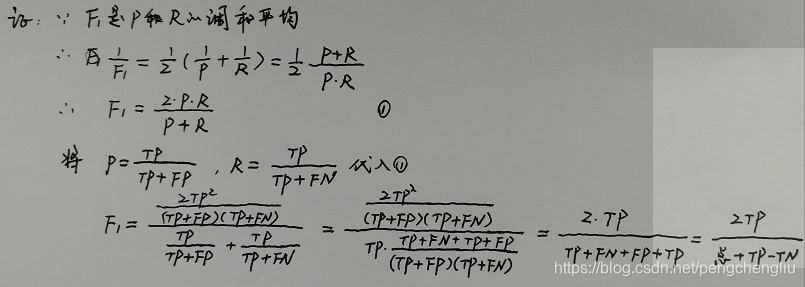 证：∵ F₁是P和R的调和平均
∴ 因 1/F₁ = 1/2 (1/P + 1/R) = 1/2 (P+R)/(P·R)
∴ F₁ = 2·P·R/(P+R) ①
将 P = TP/(TP+FP) , R = TP/(TP+FN) 代入①
F₁ = (2TP²/((TP+FP)(TP+FN)))/(TP/(TP+FP) + TP/(TP+FN)) = (2TP²/((TP+FP)(TP+FN)))/(TP·(TP+FN+TP+FP)/((TP+FP)(TP+FN))) = 2·TP/(TP+FN+FP+TP) = 2TP/(总+TP-TN)
https://blog.csdn.net/pengchengliu